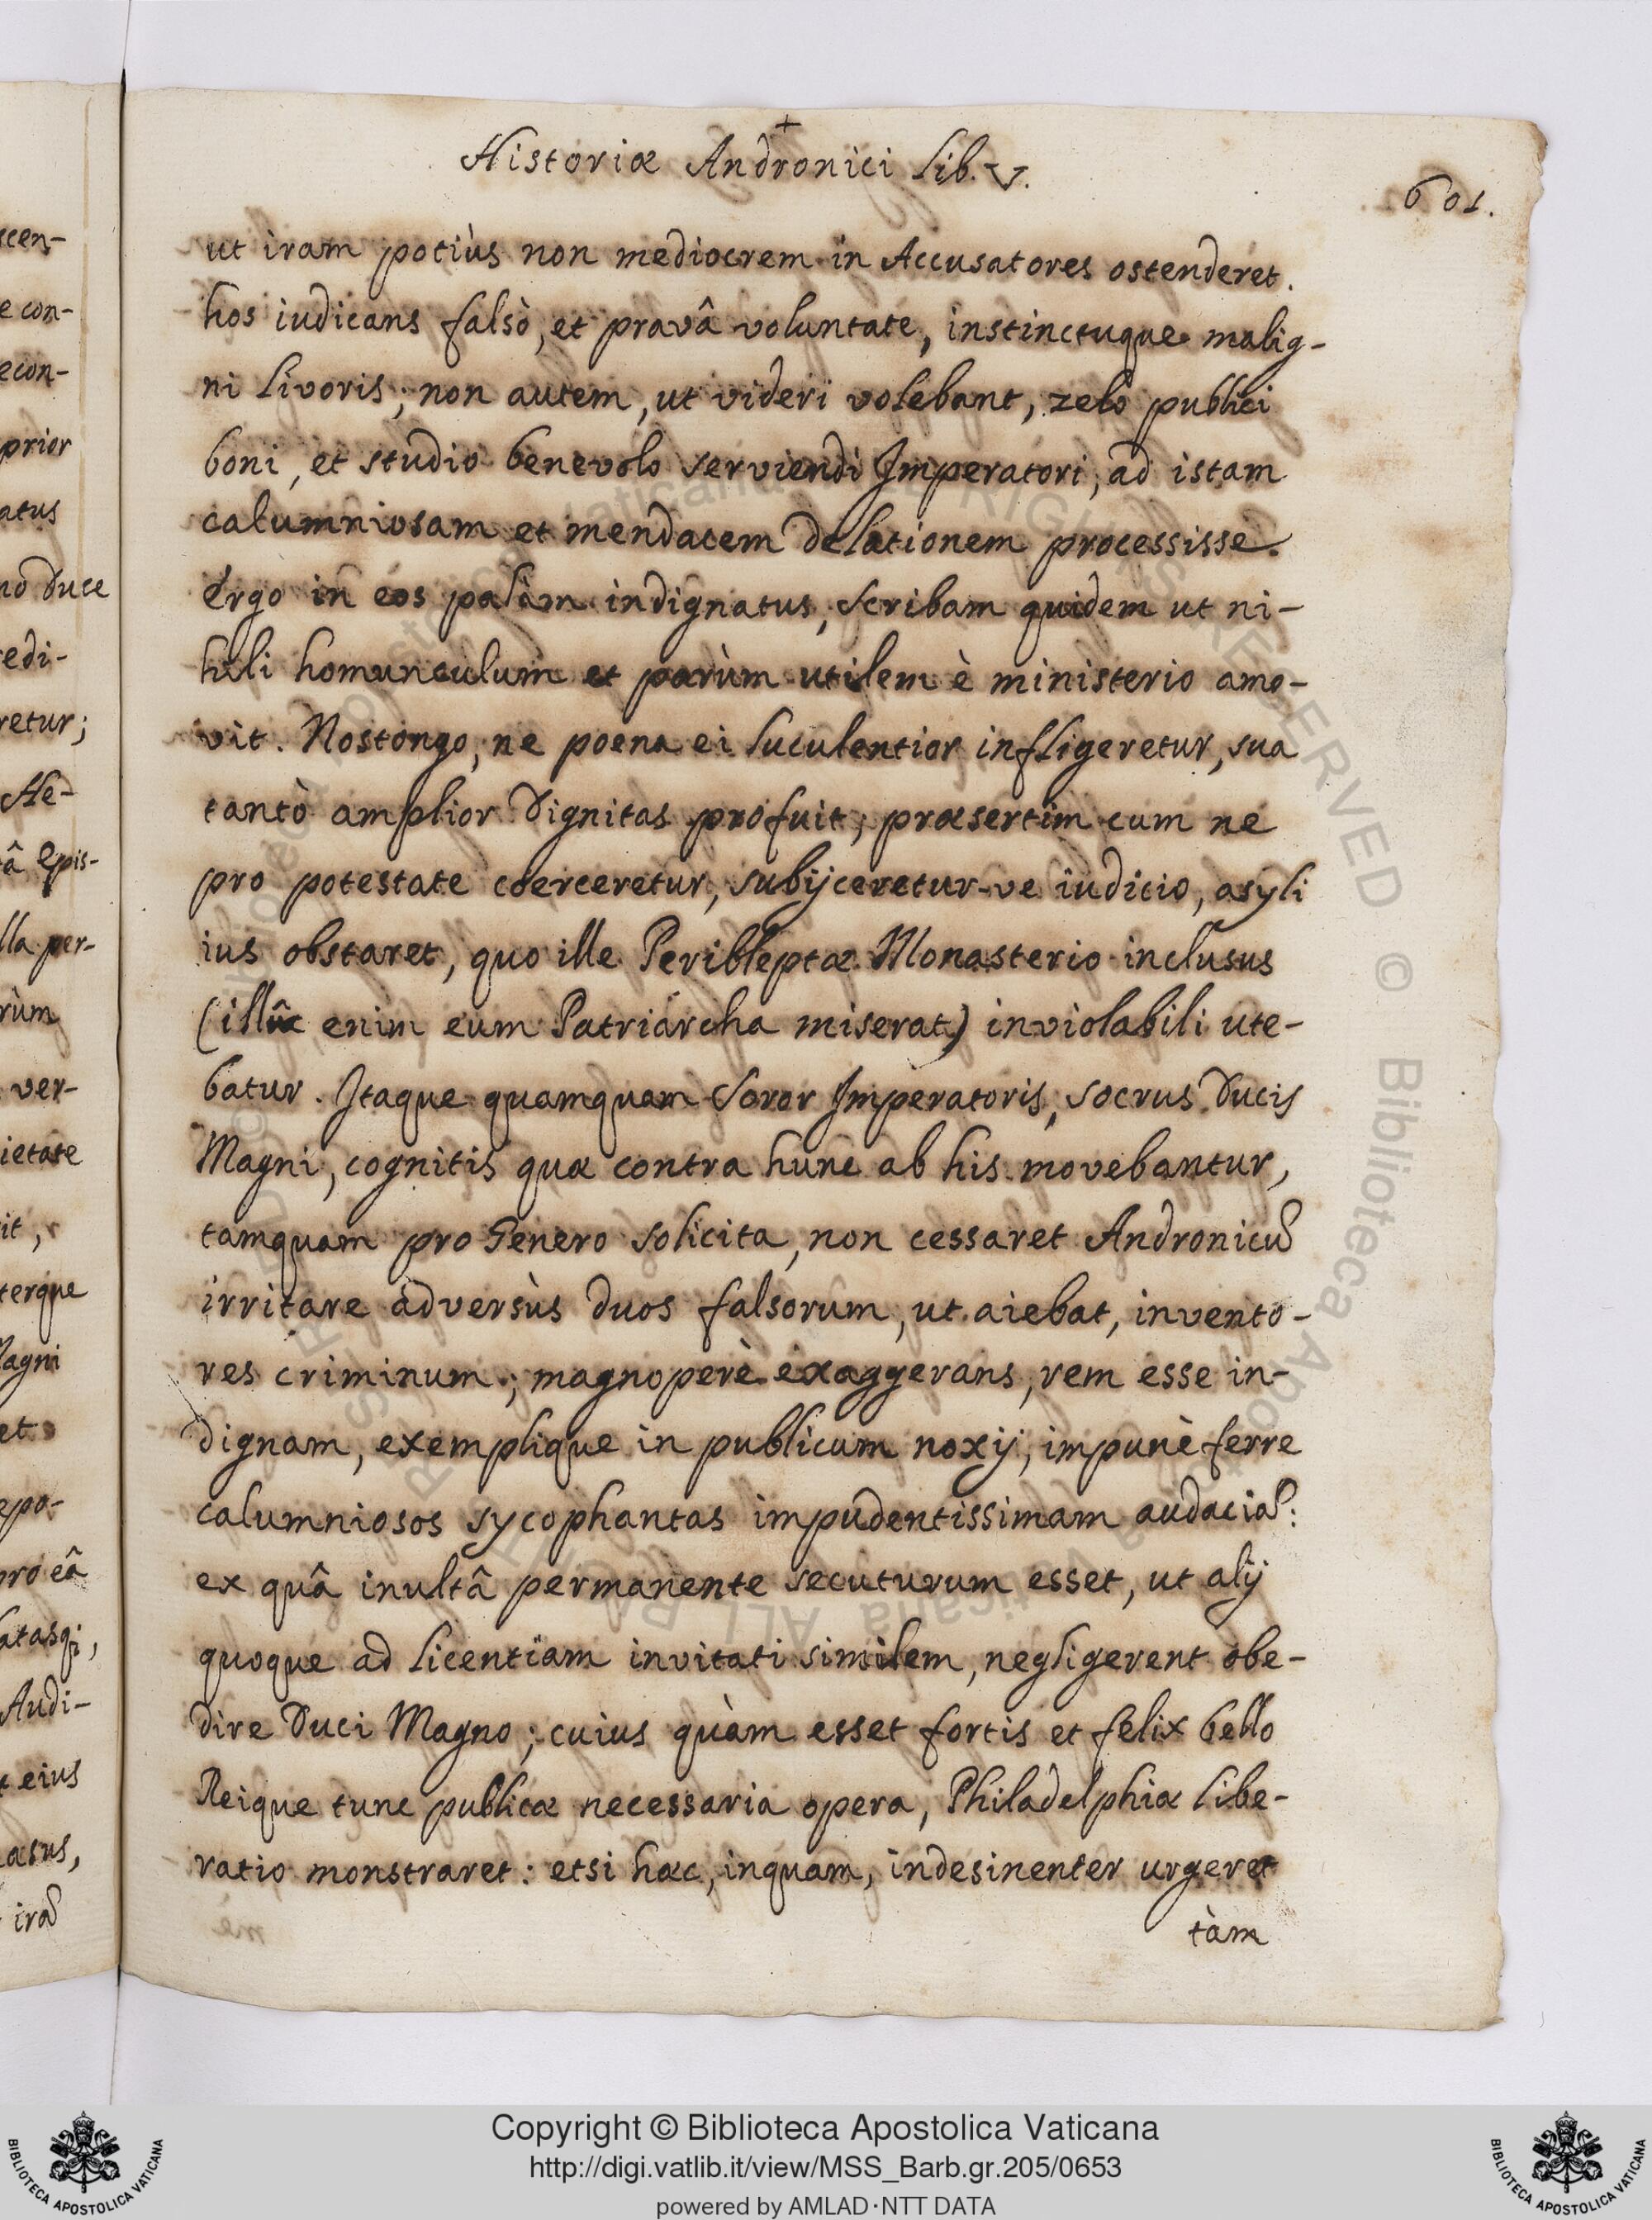 Historiæ Andronici Lib. V.
601.
ut iram potiùs non mediocrem in Accusatores ostenderet.
hos iudicans falsò, et pravâ voluntate, instinctuque malig-
ni livoris; non autem, ut videri volebant, zelo publici
boni, et studio benevolo serviendi Imperatori, ad istam
calumniosam et mendacem delationem processisse.
Ergo in eos palàm indignatus, Scribam quidem ut ni-
hili homunculum et parùm utilem è ministerio amo-
vit. Nostongo, ne poena ei luculentior infligeretur, sua
tantò amplior Dignitas profuit; præsertim cum ne
pro potestate coerceretur, subijceretur-ve iudicio, asyli
ius obstaret, quo ille Peribleptæ Monasterio inclusus
(illûc enim eum Patriarcha miserat) inviolabili ute-
batur. Itaque quamquam Soror Imperatoris, socrus Ducis
Magni, cognitis quæ contra hunc ab his movebantur,
tamquam pro Genero solicita, non cessaret Andronicũ
irritare adversùs duos falsorum, ut aiebat, invento-
res criminum; magnoperè exaggerans, rem esse in-
dignam, exemplique in publicum noxij, impunè ferre
calumniosos sycophantas impudentissimam audaciã:
ex quâ inultâ permanente secuturum esset, ut alij
quoque ad licentiam invitati similem, negligerent obe-
dire Duci Magno; cuius quàm esset fortis et felix bello
Reique tunc publicæ necessaria opera, Philadelphiæ libe-
ratio monstraret: etsi hæc, inquam, indesinenter urgeret
tàm
scen-
e con-
econ-
prior
atus
no Duce
edi-
retur;
He-
â Epis-
lla per-
rùm
ver-
ietate
it,
terque
Magni
et
epo-
pro eâ
Audi-
t eius
asus,
irã
Copyright © Biblioteca Apostolica Vaticana
http://digi.vatlib.it/view/MSS_Barb.gr.205/0653
powered by AMLAD·NTT DATA
BIBLIOTECA APOSTOLICA VATICANA
BIBLIOTECA APOSTOLICA VATICANA